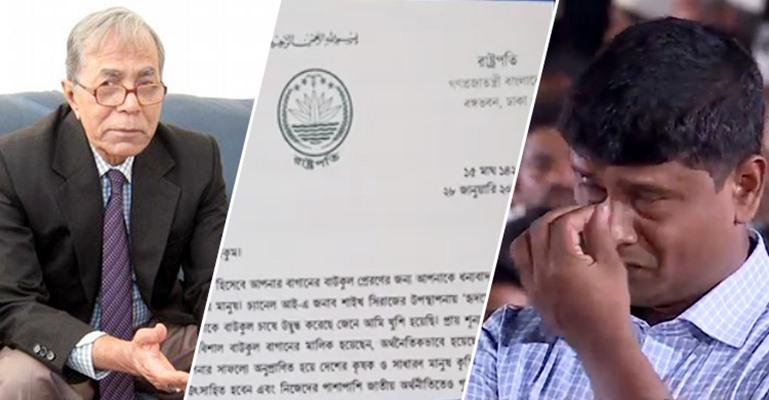 রাষ্ট্রপতি
গণপ্রজাতন্ত্রী
বঙ্গভবন, ঢাকা
রাষ্ট্রপতি
১৫ মাঘ
২৮ জানুয়ারি
হিসেবে আপনার বাগানের বাউকুল প্রেরণের জন্য আপনাকে ধন্যবাদ
মানুষ। চ্যানেল আই-এ জনাব শাইখ সিরাজের উপস্থাপনায়
বাউকুল চাষে উদ্বুদ্ধ করেছে জেনে আমি খুশি হয়েছি। প্রায়
বাউকুল বাগানের মালিক হয়েছেন, অর্থনৈতিকভাবে
সাফল্যে অনুপ্রাণিত হয়ে দেশের কৃষক ও সাধারণ মানুষ
হবেন এবং নিজেদের পাশাপাশি জাতীয় অর্থনীতিতেও